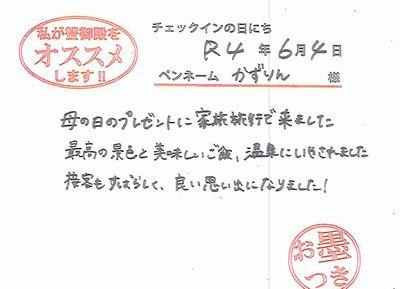 私が蟹御殿を
オススメ
します!!
チェックインの日にち
R4 年 6 月 4 日
ペンネーム かずりん 様
母の日のプレゼントに家族旅行で来ました
最高の景色と美味しいご飯、温泉にいやされました
接客もすばらしく、良い思い出になりました!
お墨
つき